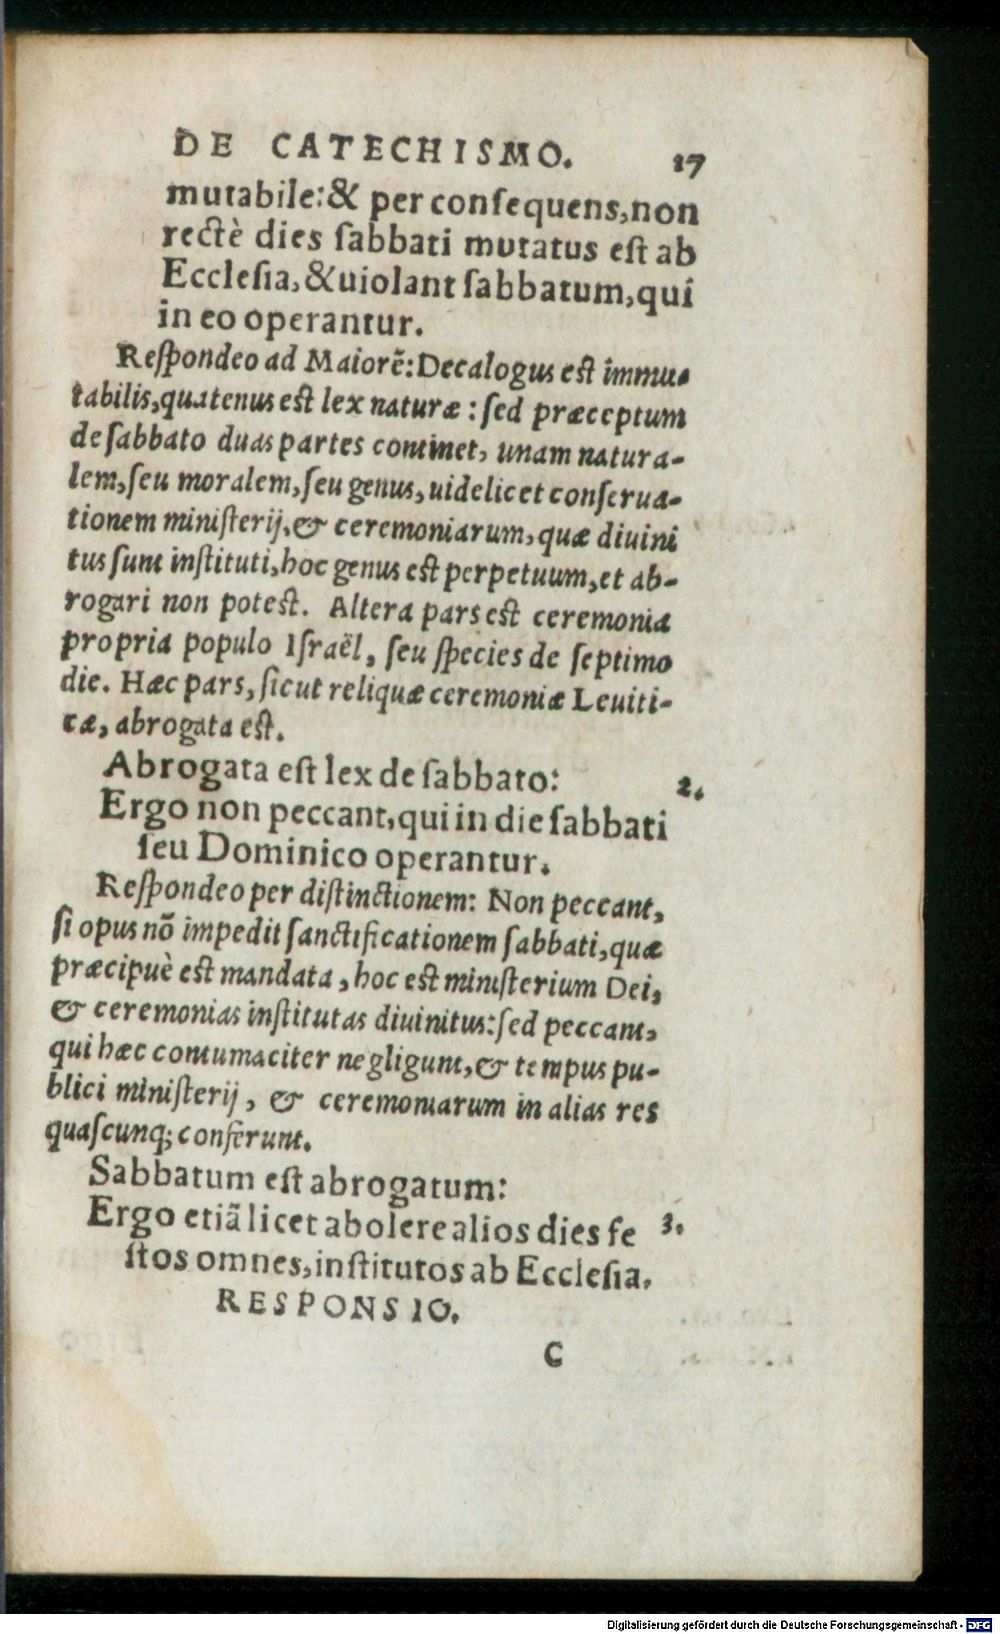 DE CATECHISMO. 17
mutabile:& per conſequens,non
rectè dies ſabbati mutatus eſt ab
Eccleſia,&uiolant ſabbatum,qui
in eo operantur.
Reſpondeo ad Maiorē:Decalogus eſt immu-
tabilis,quatenus eſt lex naturæ : ſed præceptum
de ſabbato duas partes continet, unam natura-
lem,ſeu moralem,ſeu genus,uidelicet conſerua-
tionem miniſterij,& ceremoniarum,quæ diuini
tus ſunt inſtituti,hoc genus eſt perpetuum,et ab-
rogari non poteſt. Altera pars eſt ceremonia
propria populo Iſraël, ſeu ſpecies de ſeptimo
die. Hæc pars,ſicut reliquæ ceremoniæ Leuiti-
cæ, abrogata eſt.
Abrogata eſt lex de ſabbato: 2.
Ergo non peccant,qui in die ſabbati
ſeu Dominico operantur.
Reſpondeo per diſtinctionem: Non peccant,
ſi opus nō impedit ſanctificationem ſabbati,quæ
præcipuè eſt mandata,hoc eſt miniſterium Dei,
& ceremonias inſtitutas diuinitus:ſed peccant,
qui hæc contumaciter negligunt,& tempus pu-
blici miniſterij, & ceremoniarum in alias res
quaſcunq; conferunt.
Sabbatum eſt abrogatum:
Ergo etiā licet abolere alios dies fe 3.
ſtos omnes,inſtitutos ab Eccleſia.
RESPONSIO.
C
Digitalisierung gefördert durch die Deutsche Forschungsgemeinschaft - DFG